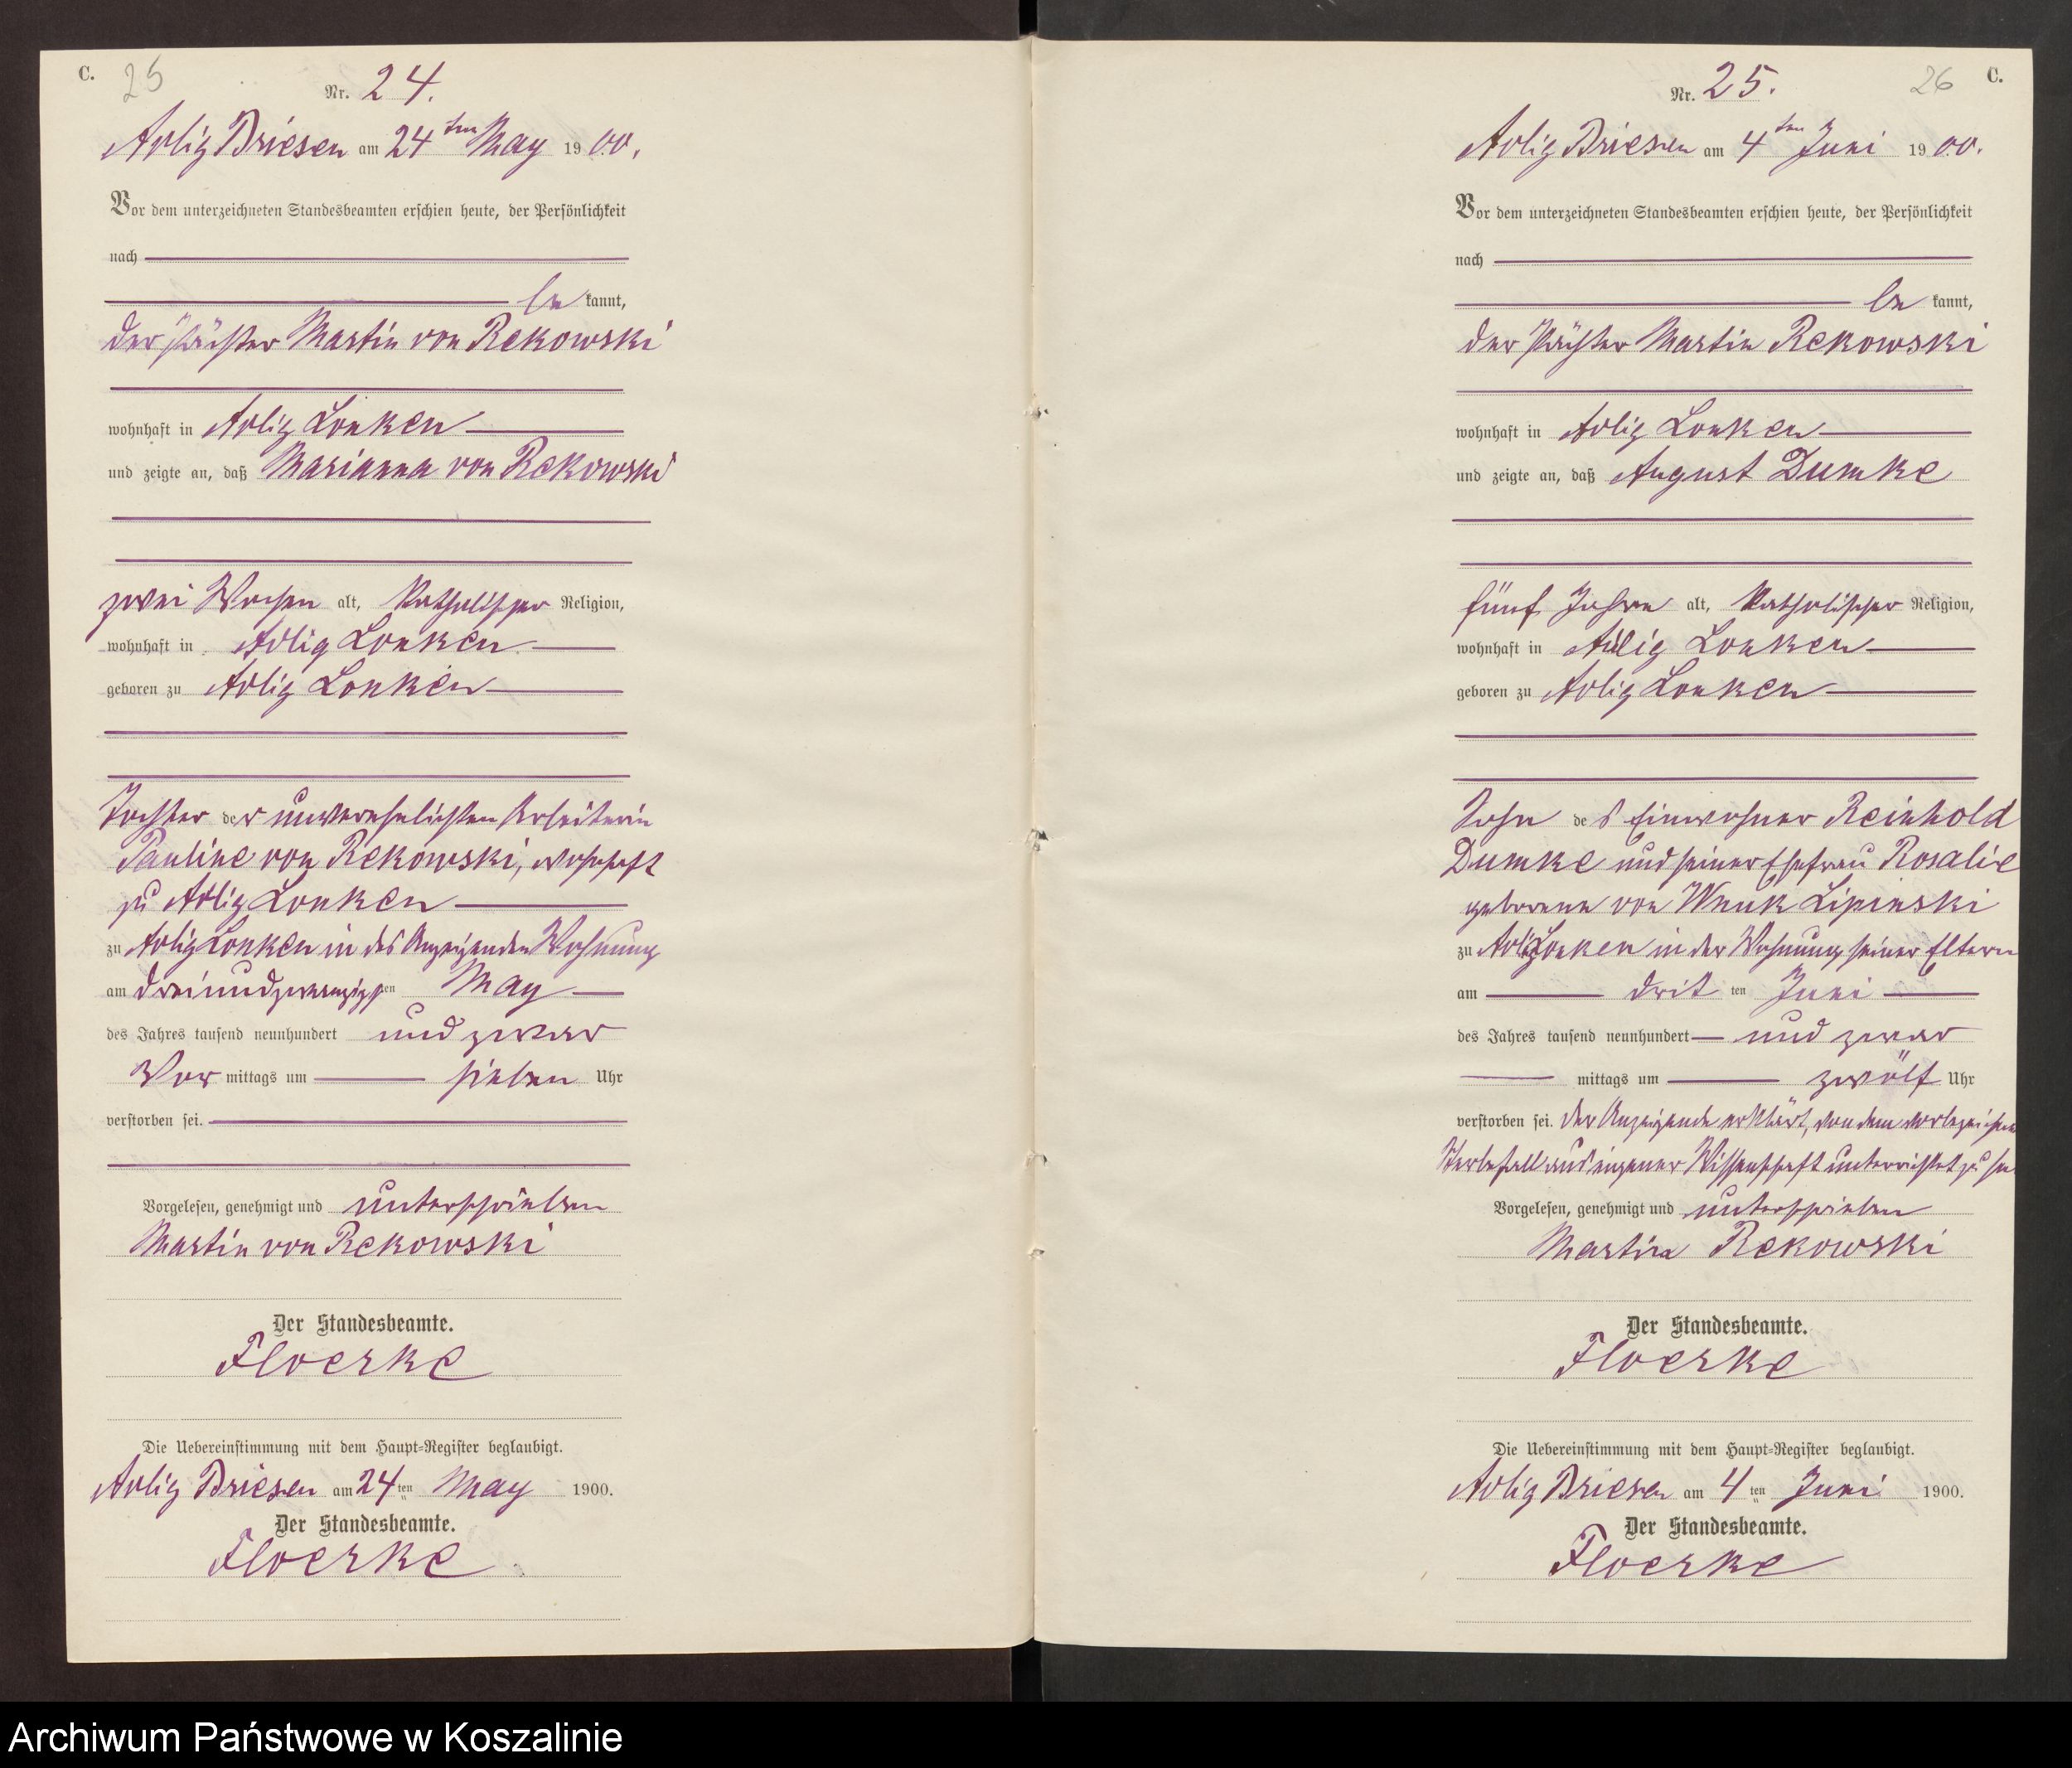 C. 25
Nr. 24.
Adlig Briesen am 24ten May 1900.
Vor dem unterzeichneten Standesbeamten erschien heute, der Persönlichkeit
nach
be kannt,
der Pächter Martin von Rekowski
wohnhaft in Adlig Lonken
und zeigte an, daß Marianna von Rekowski
zwei Wochen alt, katholischer Religion,
wohnhaft in Adlig Lonken
geboren zu Adlig Lonken
Tochter der unverehelichten Arbeiterin
Pauline von Rekowski, wohnhaft
zu Adlig Lonken
zu Adlig Lonken in des Anzeigenden Wohnung
am dreiundzwanzigsten May
des Jahres tausend neunhundert und zwar
Vor mittags um sieben Uhr
verstorben sei.
Vorgelesen, genehmigt und unterschrieben
Martin von Rekowski
Der Standesbeamte.
Floerke
Die Uebereinstimmung mit dem Haupt-Register beglaubigt.
Adlig Briesen am 24ten May 1900.
Der Standesbeamte.
Floerke
26 C.
Nr. 25.
Adlig Briesen am 4ten Juni 1900.
Vor dem unterzeichneten Standesbeamten erschien heute, der Persönlichkeit
nach
be kannt,
der Pächter Martin Rekowski
wohnhaft in Adlig Lonken
und zeigte an, daß August Dumke
fünf Jahre alt, katholischer Religion,
wohnhaft in Adlig Lonken
geboren zu Adlig Lonken
Sohn des Einwohner Reinhold
Dumke und seiner Ehefrau Rosalie
geborene von Wnuk Lipinski
zu Adlig Lonken in der Wohnung seiner Eltern
am drit ten Juni
des Jahres tausend neunhundert und zwar
mittags um zwölf Uhr
verstorben sei. Der Anzeigende erklärt, von dem
Sterbefall aus eigener Wissenschaft unterrichtet zu sein
Vorgelesen, genehmigt und unterschrieben
Martin Rekowski
Der Standesbeamte.
Floerke
Die Uebereinstimmung mit dem Haupt-Register beglaubigt.
Adlig Briesen am 4ten Juni 1900.
Der Standesbeamte.
Floerke
Archiwum Państwowe w Koszalinie